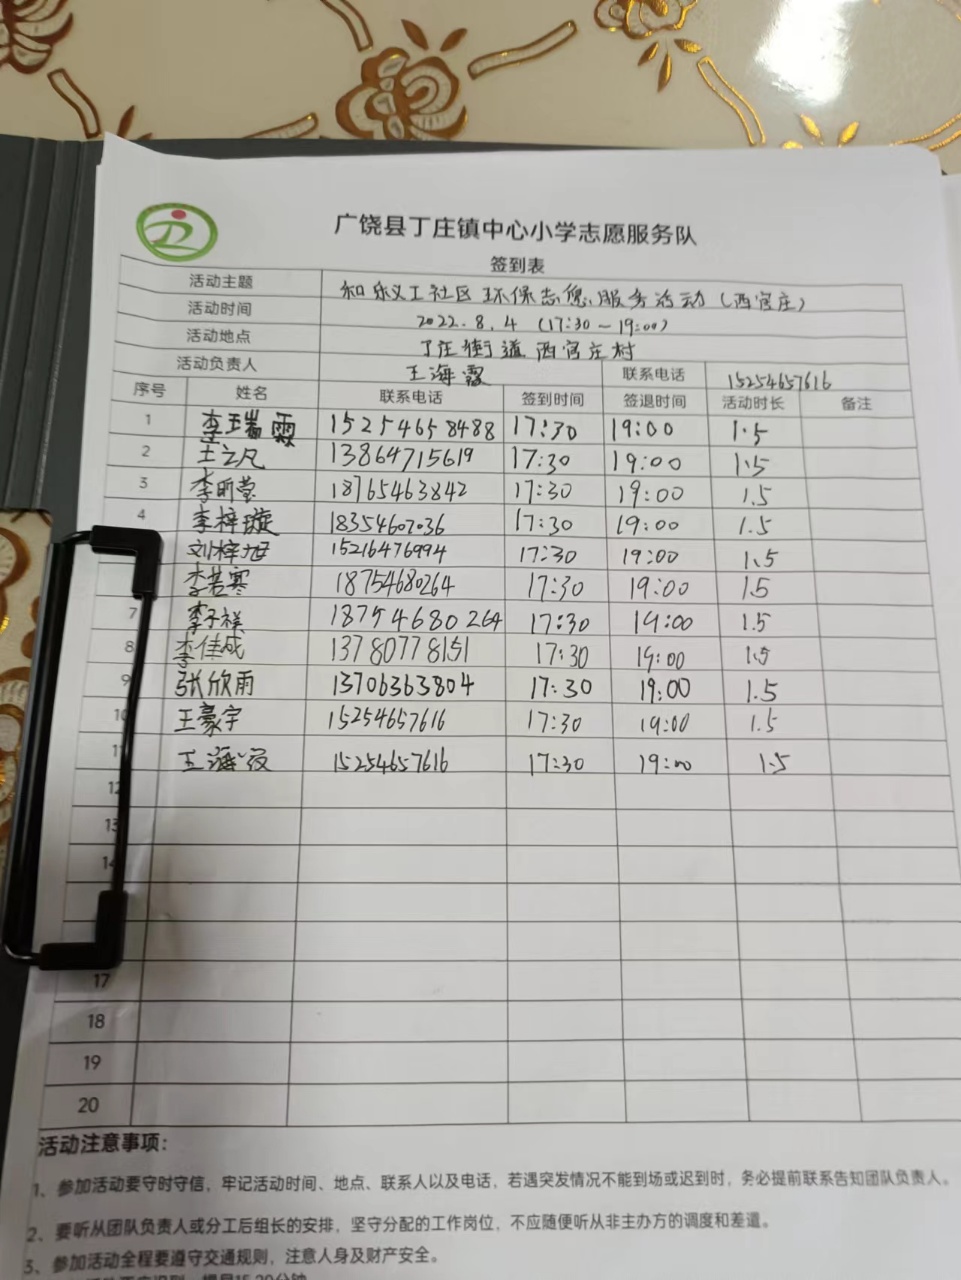 广饶县丁庄镇中心小学志愿服务队
签到表
活动主题 和义工社区环保志愿服务活动(西官庄)
活动时间 2022.8.4 (17:30~19:00)
活动地点 丁庄街道西官庄村
活动负责人 王海霞 联系电话 15254657616
序号 姓名 联系电话 签到时间 签退时间 活动时长 备注
1 李玉瑞霞 15254658488 17:30 19:00 1.5
2 王立凡 13864715619 17:30 19:00 1.5
3 李昕莹 18765463842 17:30 19:00 1.5
4 李梓璇 18354607036 17:30 19:00 1.5
刘梓旭 15216476994 17:30 19:00 1.5
李若寒 18754680264 17:30 19:00 1.5
7 李子祥 18754680264 17:30 19:00 1.5
8 李佳成 13780778151 17:30 19:00 1.5
9 张欣雨 13706363804 17:30 19:00 1.5
10 王豪宇 15254657616 17:30 19:00 1.5
11 王海霞 15254657616 17:30 19:00 1.5
12
13
14
17
18
19
20
活动注意事项:
1、参加活动要守时守信,牢记活动时间、地点、联系人以及电话,若遇突发情况不能到场或迟到时,务必提前联系告知团队负责人。
2、要听从团队负责人或分工后组长的安排,坚守分配的工作岗位,不应随便听从非主办方的调度和差遣。
3、参加活动全程要遵守交通规则,注意人身及财产安全。